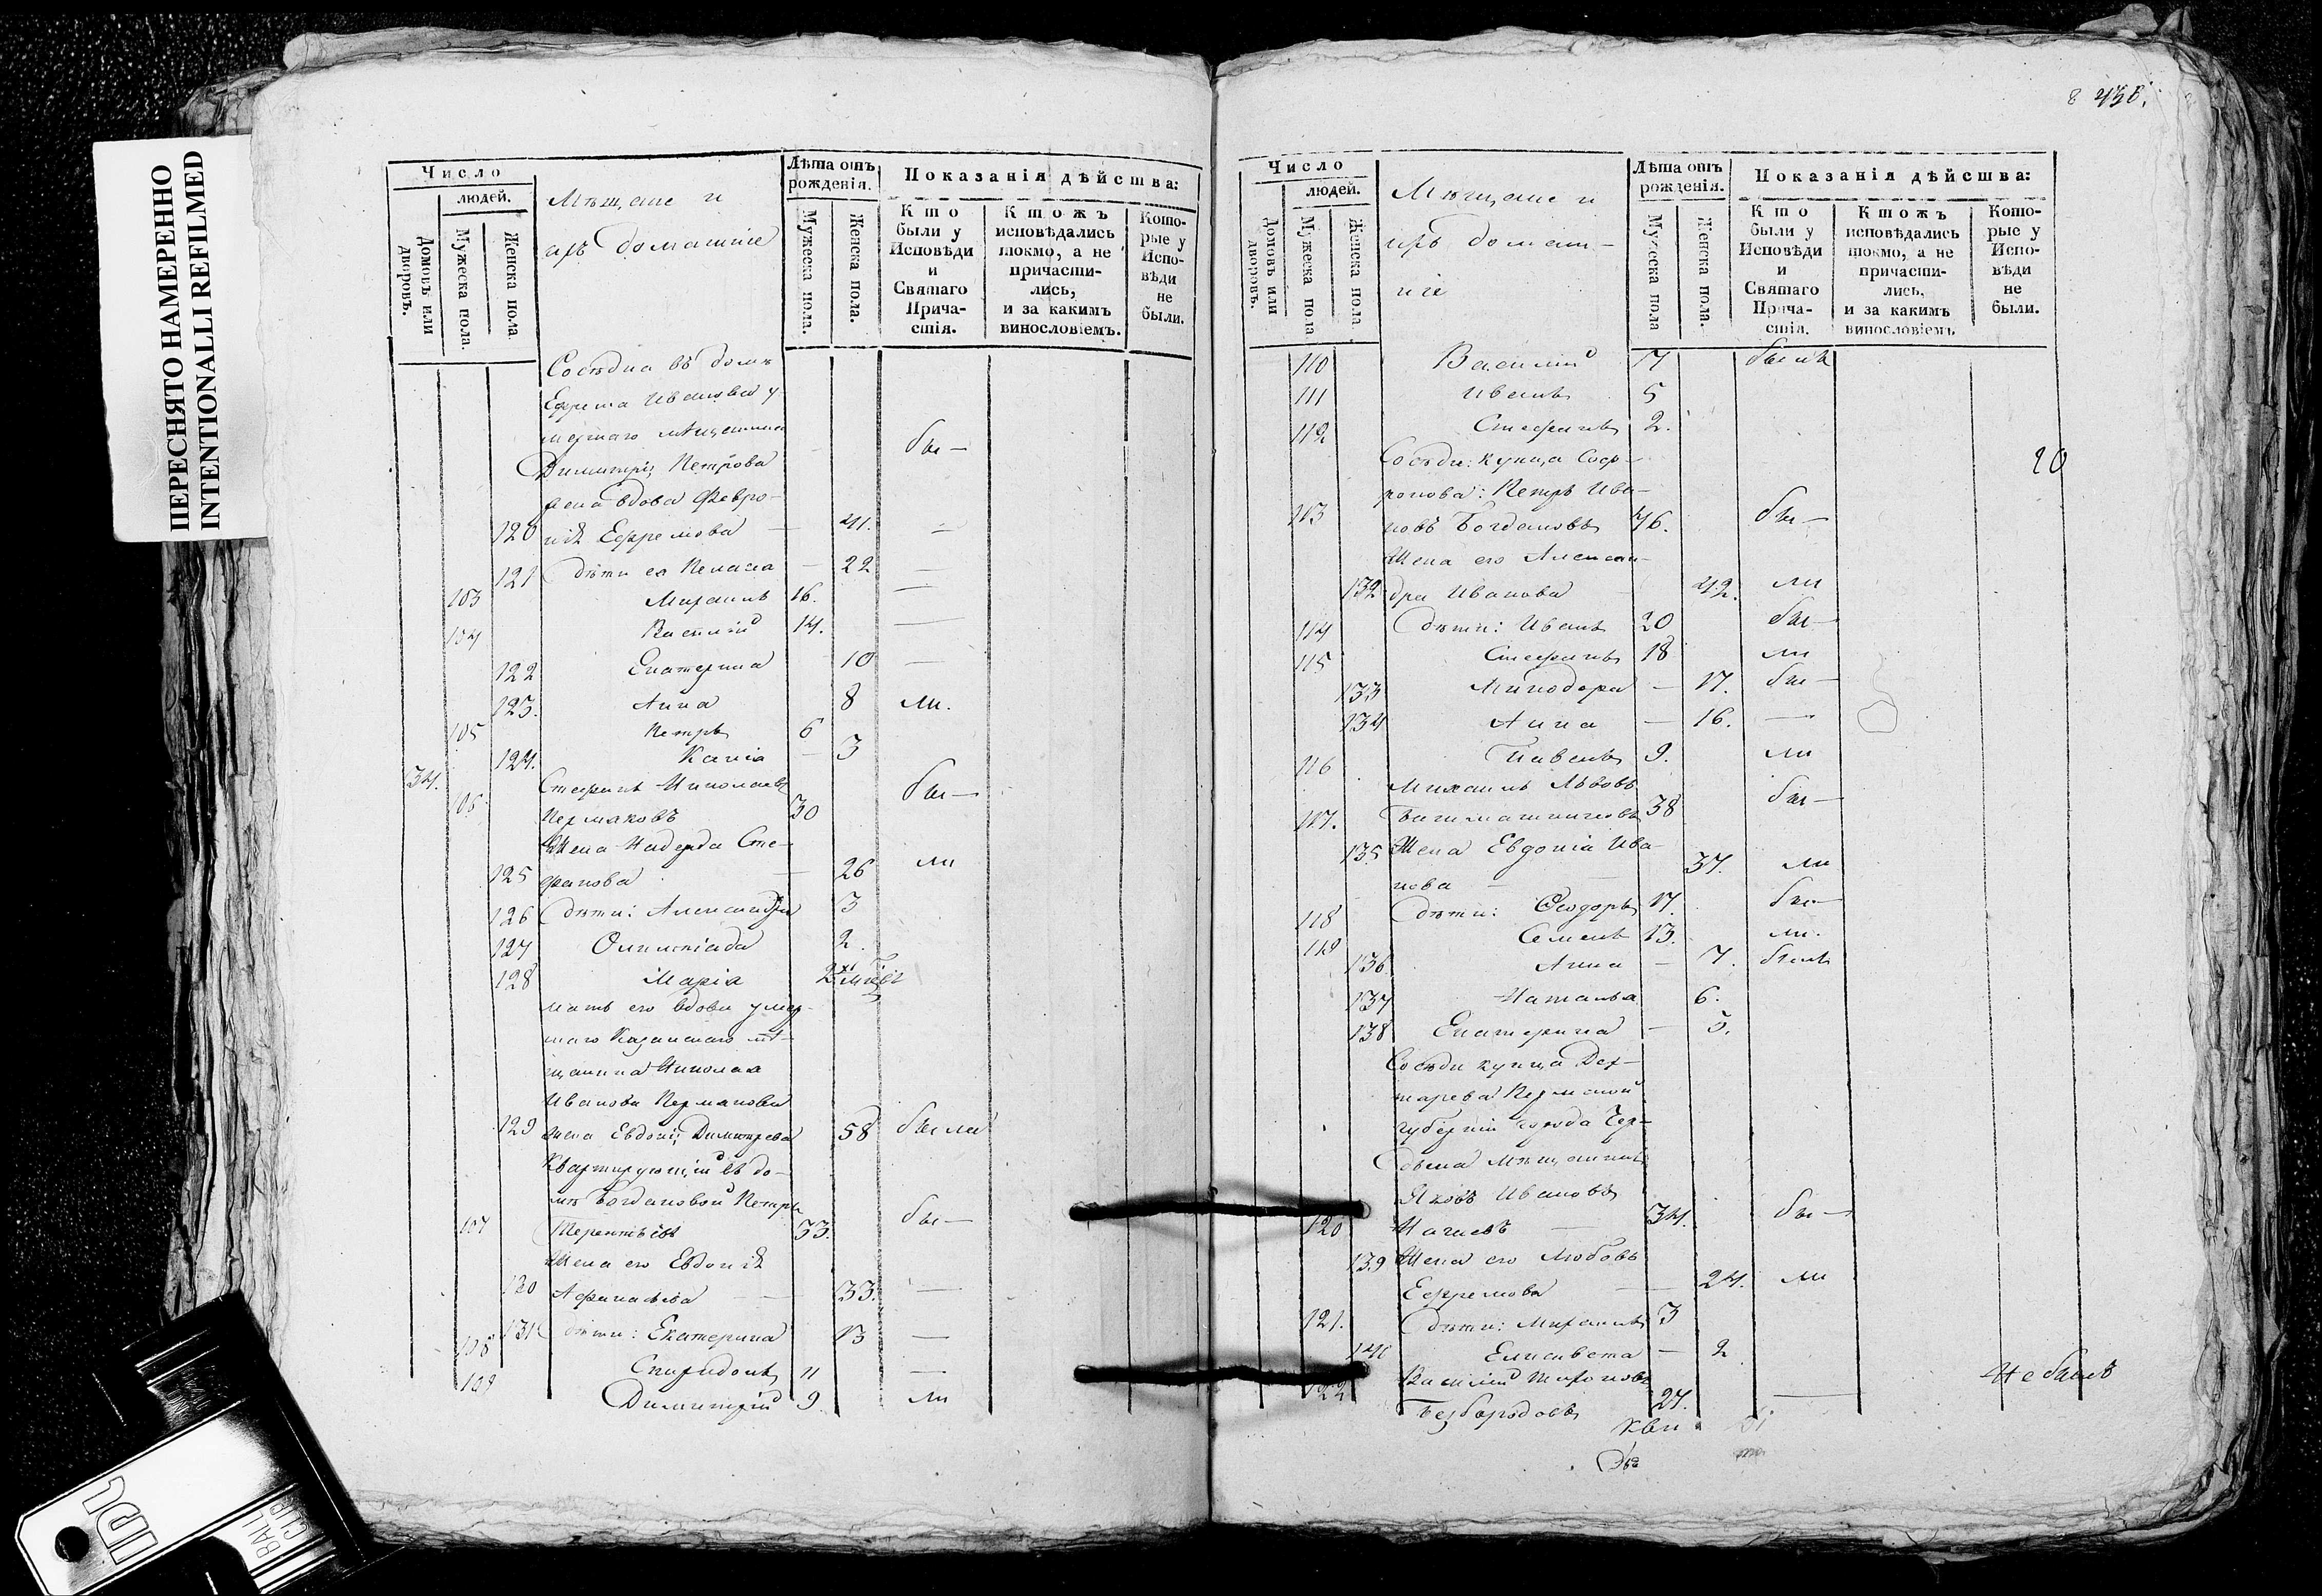 ПЕРЕСНЯТО НАМЕРЕННО
INTENTIONALLI REFILMED
Число
людей.
Домовъ или дворовъ.
Мужеска пола.
Женска пола.
Мѣщане и
ихъ домашніе
Лѣта отъ рожденія.
Мужеска пола.
Женска пола.
Показанія дѣйства:
Кто были у Исповѣди и Святаго Причастія.
Ктожъ исповѣдались токмо, а не причастились, и за какимъ винословіемъ.
Которые у Исповѣди не были.
Сосѣдка въ домѣ
Ефрема Иванова у
мершаго мѣщанина
Димитрія Петрова бы —
жена вдова Февро-
120 нія Ефремова — 41. —
121 дѣти ея Пелагia — 22 —
103 Михаилъ 16. —
104 Василій 14. —
122 Екатерина 10 —
123. Анна 8 ли.
105 Петръ 6
124. Ксенія — 3
34. Стефанъ Николаевъ бы —
106 Пермяковъ 30
Жена Надежда Сте-
125 фанова — 26 ли
126 дѣти: Александра 3
127 Олимпіада 2.
128 Марія 2хъ мцовъ
мать его вдова умер-
шаго Казанскаго мѣ-
щанина Николая
Иванова Пермякова
129 жена Евдокія Димитрева 58 была
Квартирующій въ до-
мѣ Богдановой Петръ
107 Терентьевъ 33. бы —
Жена его Евдокія
130 Афанасьева — 33. —
131 дѣти: Екатерина 13 —
108 Спиридонъ 11 —
109 Димитрій 9 ли
8 438.
Число
людей.
Домовъ или дворовъ.
Мужеска пола
Женска пола.
Мѣщане и
ихъ домаш-
ніе
Лѣта отъ рожденія.
Мужеска пола
Женска пола.
Показанія дѣйства:
Кто были у Исповѣди и Святаго Причастія.
Ктожъ исповѣдались токмо, а не причастились, и за какимъ винословіемъ
Которые у Исповѣди не были.
110 Василій 7 былъ
111 Иванъ 5
112 Стефанъ 2.
Сосѣди: купца Соф-
20
ронова: Петръ Ива-
113 новъ Богдановъ 46. бы —
Жена его Алексан-
132 дра Иванова 42. ли
114 дѣти: Иванъ 20 бы —
115 Стефанъ 18 ли
133 Минодора — 17. бы —
134 Анна — 16. —
116 Павелъ 9. ли
Михаилъ Львовъ
117. 38 бы —
135 Жена Евдокія Ива-
нова — 37. ли
118 дѣти: Ѳеодоръ 17. бы —
119 Семенъ 13. ли.
136 Анна — 7. былъ
137 Наталья 6.
138 Екатерина — 5.
Сосѣди купца Дех-
тярева Пермской
губерніи города Чер-
дына мѣщанинъ
Яковъ Ивановъ
120 — 34. бы —
139 Жена его Любовь
Ефремова — 24. ли
121. дѣти: Михаилъ 3
140 Елисавета — 2
Василій
122 Безбородовъ 27. — Не былъ